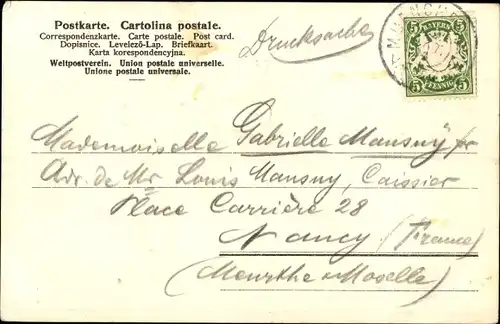 Postkarte. Cartolina postale.
Correspondenzkarte. Carte postale. Post card.
Dopisnice. Levelező-Lap. Briefkaart.
Karta korespondencyjna.
Weltpostverein. Union postale universelle.
Unione postale universale.
Drucksache
BAYERN
5 5
5 PFENNIG 5
Mademoiselle Gabrielle Mansuy
Adr. de Mr Louis Mansuy, Caissier
Place Carrière 28
Nancy (France)
(Meurthe & Moselle)